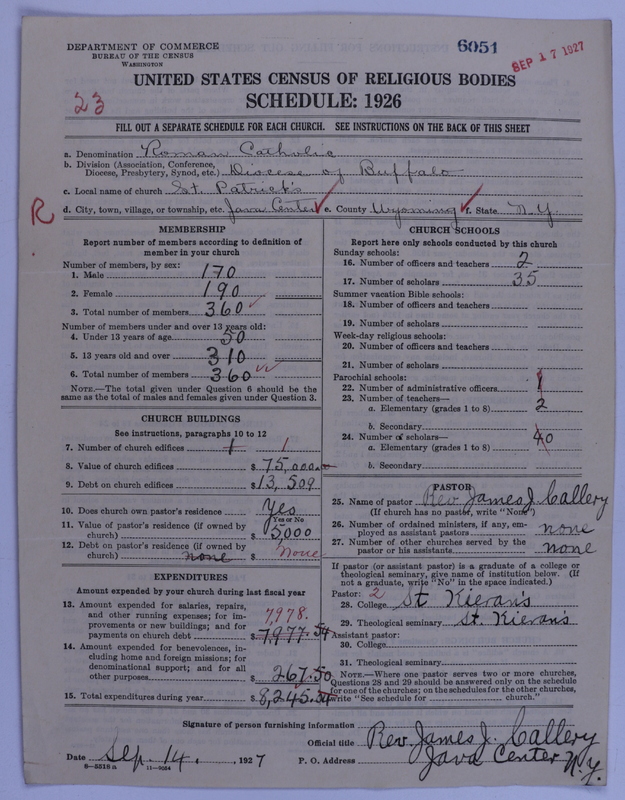 DEPARTMENT OF COMMERCE
BUREAU OF THE CENSUS
WASHINGTON
6051
SEP 17 1927
UNITED STATES CENSUS OF RELIGIOUS BODIES
23
SCHEDULE: 1926
FILL OUT A SEPARATE SCHEDULE FOR EACH CHURCH. SEE INSTRUCTIONS ON THE BACK OF THIS SHEET
a. Denomination Roman Catholic
b. Division (Association, Conference,
Diocese, Presbytery, Synod, etc.) Diocese of Buffalo
c. Local name of church St. Patrick's
R
d. City, town, village, or township, etc. Java Center e. County Wyoming f. State N.Y.
MEMBERSHIP
Report number of members according to definition of
member in your church
Number of members, by sex:
1. Male 170
2. Female 190
3. Total number of members 360
Number of members under and over 13 years old:
4. Under 13 years of age 50
5. 13 years old and over 310
6. Total number of members 360
NOTE.—The total given under Question 6 should be the
same as the total of males and females given under Question 3.
CHURCH BUILDINGS
See instructions, paragraphs 10 to 12
7. Number of church edifices 1 1
8. Value of church edifices $ 75,000.00
9. Debt on church edifices $ 13,509
10. Does church own pastor's residence Yes
Yes or No
11. Value of pastor's residence (if owned by
church) $ 5,000
12. Debt on pastor's residence (if owned by
church) none $ None
EXPENDITURES
Amount expended by your church during last fiscal year
13. Amount expended for salaries, repairs,
and other running expenses; for im-
provements or new buildings; and for
payments on church debt 7,978. $ 7,977.54
14. Amount expended for benevolences, in-
cluding home and foreign missions; for
denominational support; and for all
other purposes $ 267.50
15. Total expenditures during year $ 8,245.04
CHURCH SCHOOLS
Report here only schools conducted by this church
Sunday schools:
16. Number of officers and teachers 2
17. Number of scholars 35
Summer vacation Bible schools:
18. Number of officers and teachers
19. Number of scholars
Week-day religious schools:
20. Number of officers and teachers
21. Number of scholars
Parochial schools:
22. Number of administrative officers 1
23. Number of teachers—
a. Elementary (grades 1 to 8) 2
b. Secondary
24. Number of scholars—
a. Elementary (grades 1 to 8) 40
b. Secondary
PASTOR
25. Name of pastor Rev. James J. Callery
(If church has no pastor, write "None")
26. Number of ordained ministers, if any, em-
ployed as assistant pastors none
27. Number of other churches served by the
pastor or his assistants none
If pastor (or assistant pastor) is a graduate of a college or
theological seminary, give name of institution below. (If
not a graduate, write "No" in the space indicated.)
Pastor: 2
28. College St. Kieran's
29. Theological seminary St. Kieran's
Assistant pastor:
30. College
31. Theological seminary
NOTE.—Where one pastor serves two or more churches,
Questions 28 and 29 should be answered only on the schedule
for one of the churches; on the schedules for the other churches,
write "See schedule for church."
Signature of person furnishing information
Official title Rev. James J. Callery
Date Sep. 14., 1927 P. O. Address Java Center N.Y.
8—5516a 11—9054